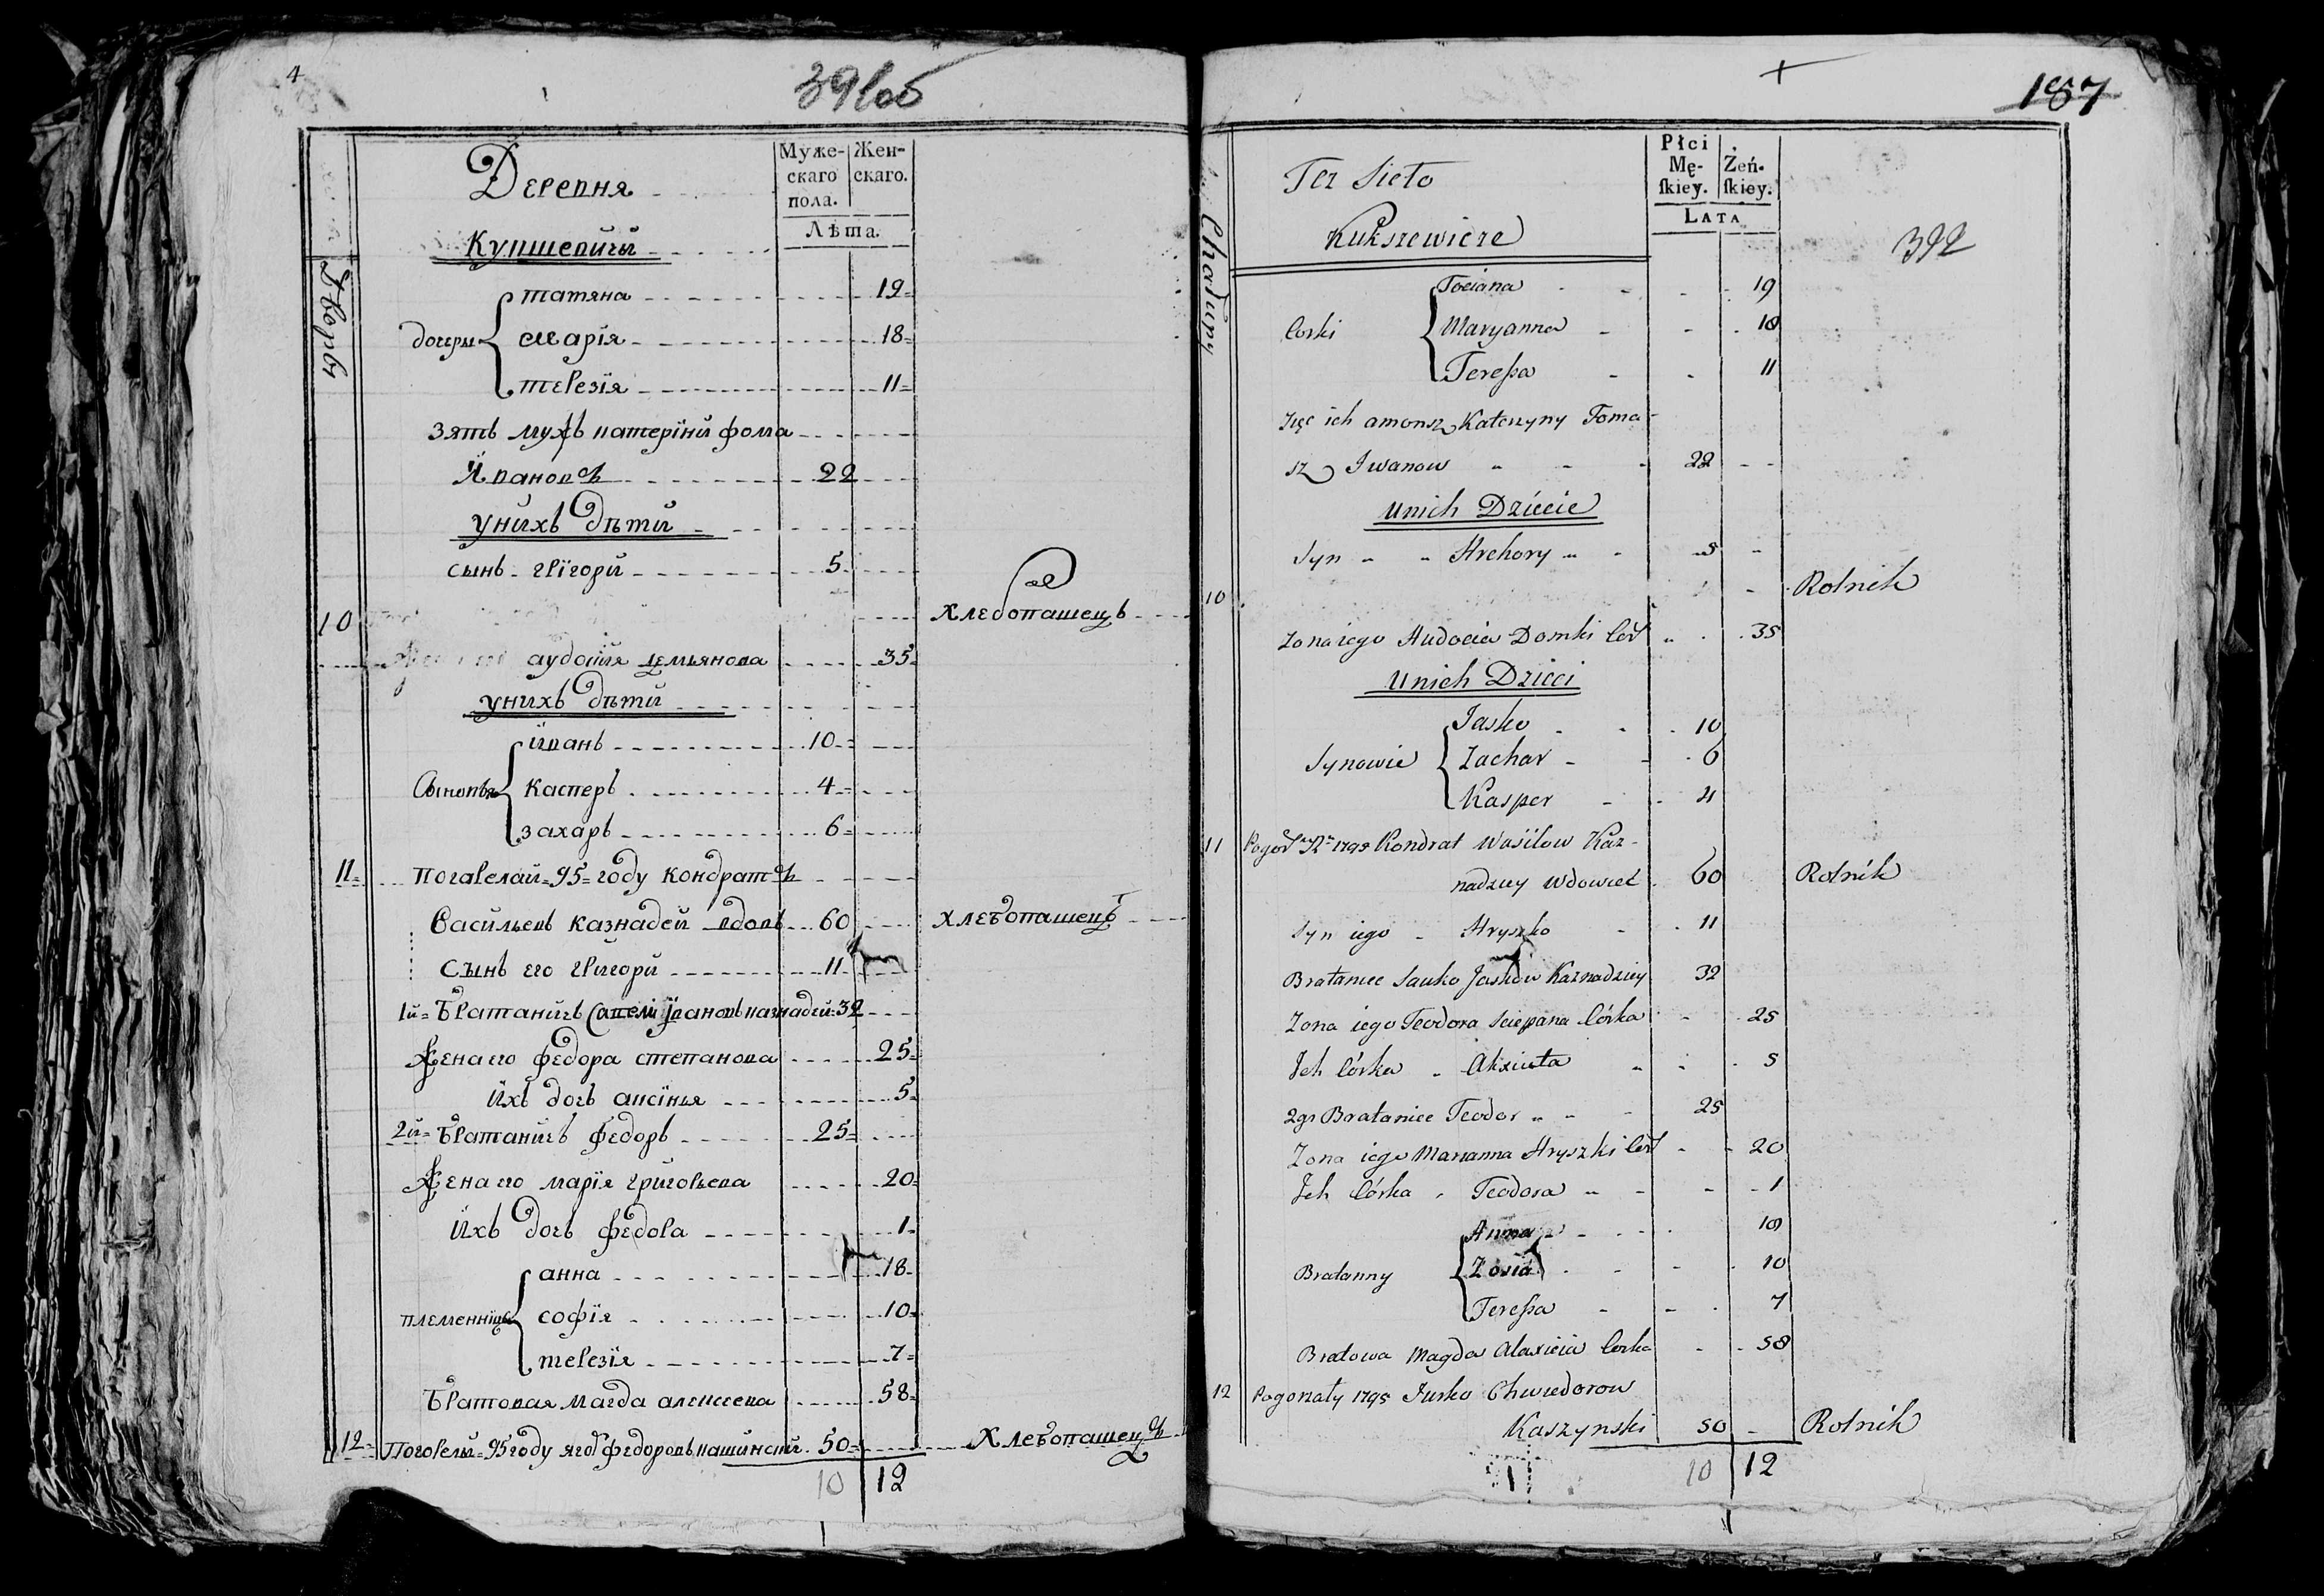 4
391об
Деревня
Мужескаго пола.
Женскаго.
Лѣта.
Купшевичи
Дворы
дочери
татяна 19
Марія 18
терезія 11
зять мужъ катерини фома
Ивановъ 22
унихъ дѣти
сынъ григори 5
10 хлебопашецъ
аудотия демьянова 35
унихъ дѣти
Сыновья
иванъ 10
касперъ 4
захаръ 6
11 погарелай 95 году кондратъ
Васильевъ казнадей вдовъ 60 хлебопашецъ
сынъ его григори 11
1й братаничъ Савели Ивановъ казнадей 32
Жена его федора степанова 25
ихъ дочъ аксинья 5
2й братаничъ федоръ 25
Жена его марія григорьева 20
ихъ дочъ федора 1
племенницы
анна 18
софія 10
терезія 7
братовая магда алексеева 58
12 погорелы 95 году яковъ федоровъ кашински 50 хлебопашецъ
10 12
157
Tez Sieło
Kukszewicze
Płci Mę-skiey.
Żeń-skiey.
LATA
392
Chałupy
Corki
Tociana 19
Maryanna 18
Teressa 11
Zięc ich amonsz Katerzyny Toma-
sz Iwanow 22
Unich Dziecie
Syn Hrehory 5
10 Rolnik
Zona iego Audocia Domki Cór 35
Unich Dzieci
Synowie
Jasko 10
Zachar 6
Kasper 4
11 Pogor 1795 Kondrat Wasilow Kaz-
nadziey Wdowiec 60 Rolnik
Syn iego Hryszko 11
Brataniec Sauko Jaskow Kaznadziey 32
Zona iego Teodora Sciepana Córka 25
Ich Córka Aksiuta 5
2gi Brataniec Teodor 25
Zona iego Marianna Hryszki Cór 20
Ich Córka Teodora 1
Bratanny
Anna 18
Zosia 10
Teressa 7
Bratowa Magda Alaxieia Corka 58
12 Pogorzały 1795 Jusko Chwiedorow
Kaszynski 50 Rolnik
10 12